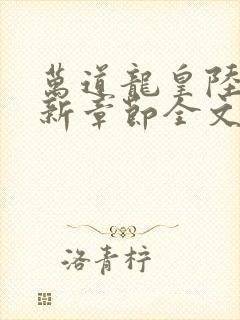 萬道龍皇陸
新章節全文
洛青梓